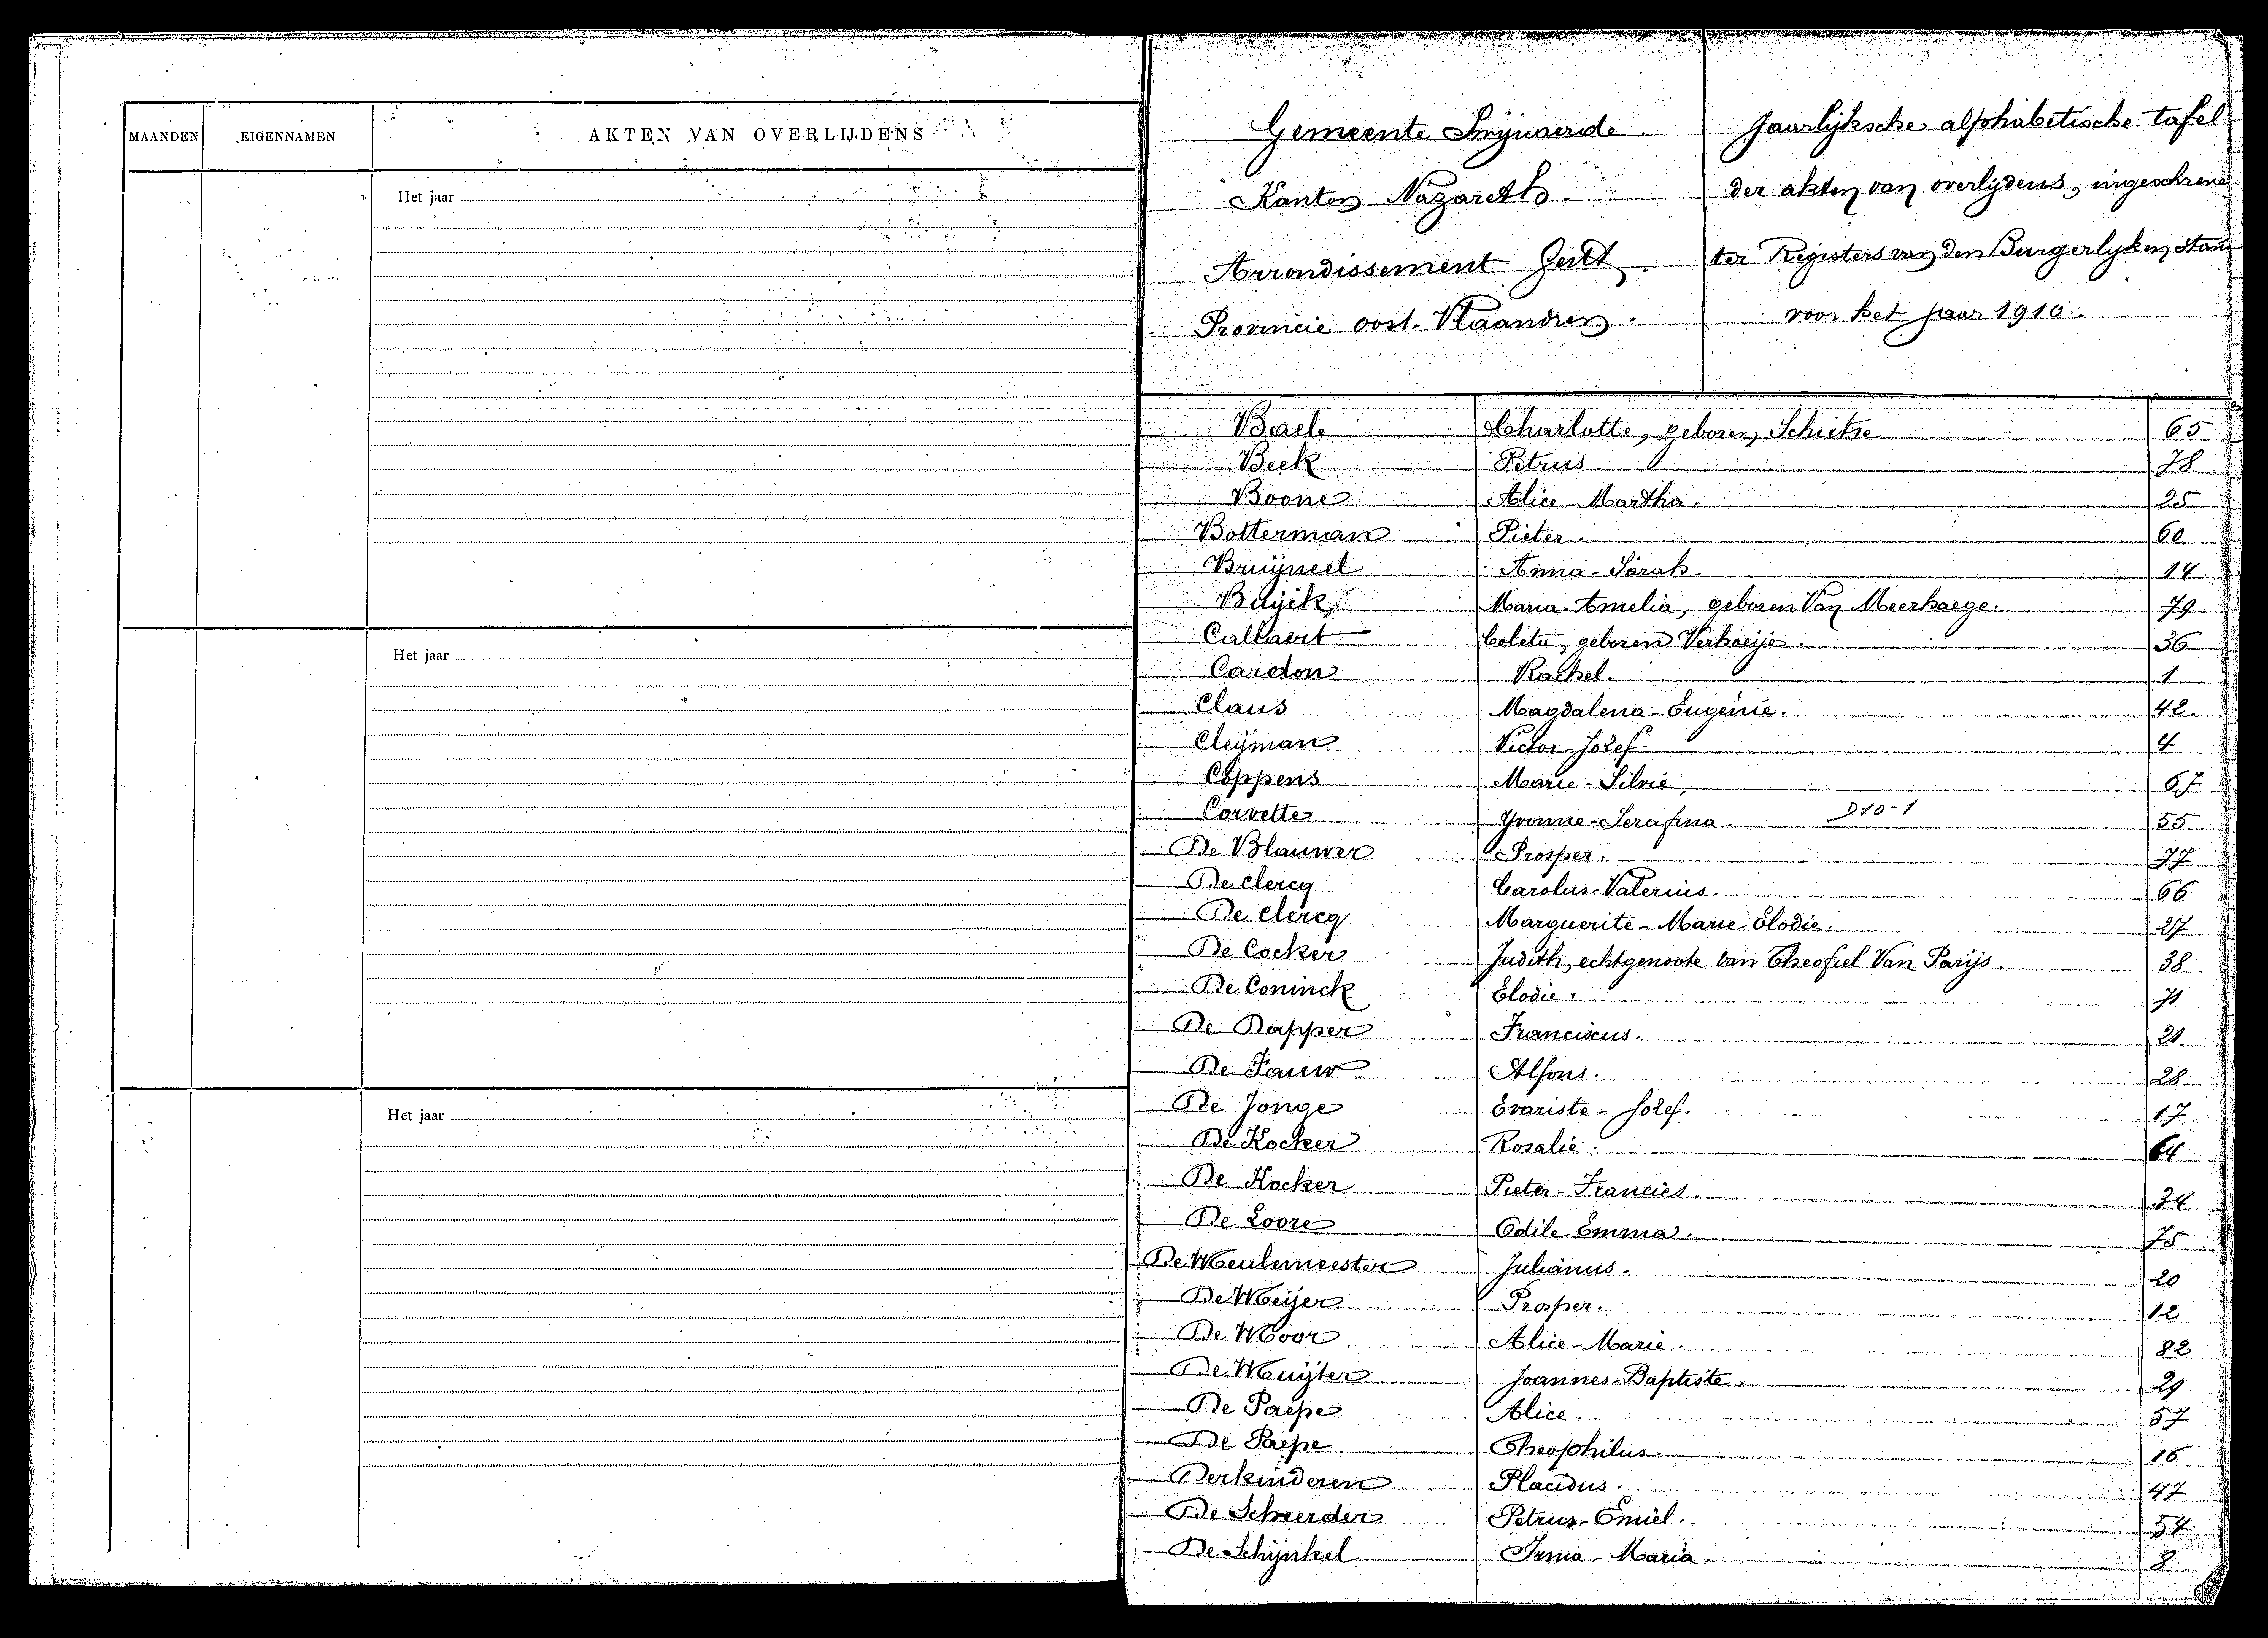 MAANDEN EIGENNAMEN AKTEN VAN OVERLIJDENS
Het jaar
Het jaar
Het jaar
Gemeente Swijnaerde
Kanton Nazareth.
Arrondissement Gent.
Provincie Oost-Vlaandren.
Jaarlijksche alphabetische tafel
der akten van overlijdens, ingeschreve
ter Registers van den Burgerlyken Stand
voor het jaar 1910.
Baele Charlotte, geboren Schietse 65
Beek Petrus 78
Boone Alice Martha. 25
Botterman Pieter. 60
Bruijneel Anna-Sarah. 14
Buijck Maria-Amelia, geboren Van Meerhaege. 79
Callaert Coleta, geboren Verhoeije. 36
Cardon Rachel. 1
Claus Magdalena-Eugenie. 42.
Cleijman Victor-Jozef. 4
Coppens Marie-Silvie 67
Corvette Yvonne-Serafina. D10-1 55
De Blauwer Prosper. 77
De Clercq Carolus-Valerius. 66
De Clercq Marguerite-Marie-Elodie. 27
De Cocker Judith, echtgenoote van Theofiel Van Parijs. 38
De Coninck Elodie. 71
De Dapper Franciscus. 21
De Fauw Alfons. 28
De Jonge Evariste-Jozef. 17
De Kocker Rosalie. 64
De Kocker Pieter-Francies. 34
De Loore Odile-Emma. 75
De Meulemeester Julianus. 20
De Meijer Prosper. 12
De Moor Alice-Marie. 82
De Muijter Joannes-Baptiste. 29
De Paepe Alice. 57
De Paepe Theophilus. 16
Derkinderen Placidus. 47
De Scheerder Petrus-Emiel. 54
De Schijnkel Irma-Maria. 8